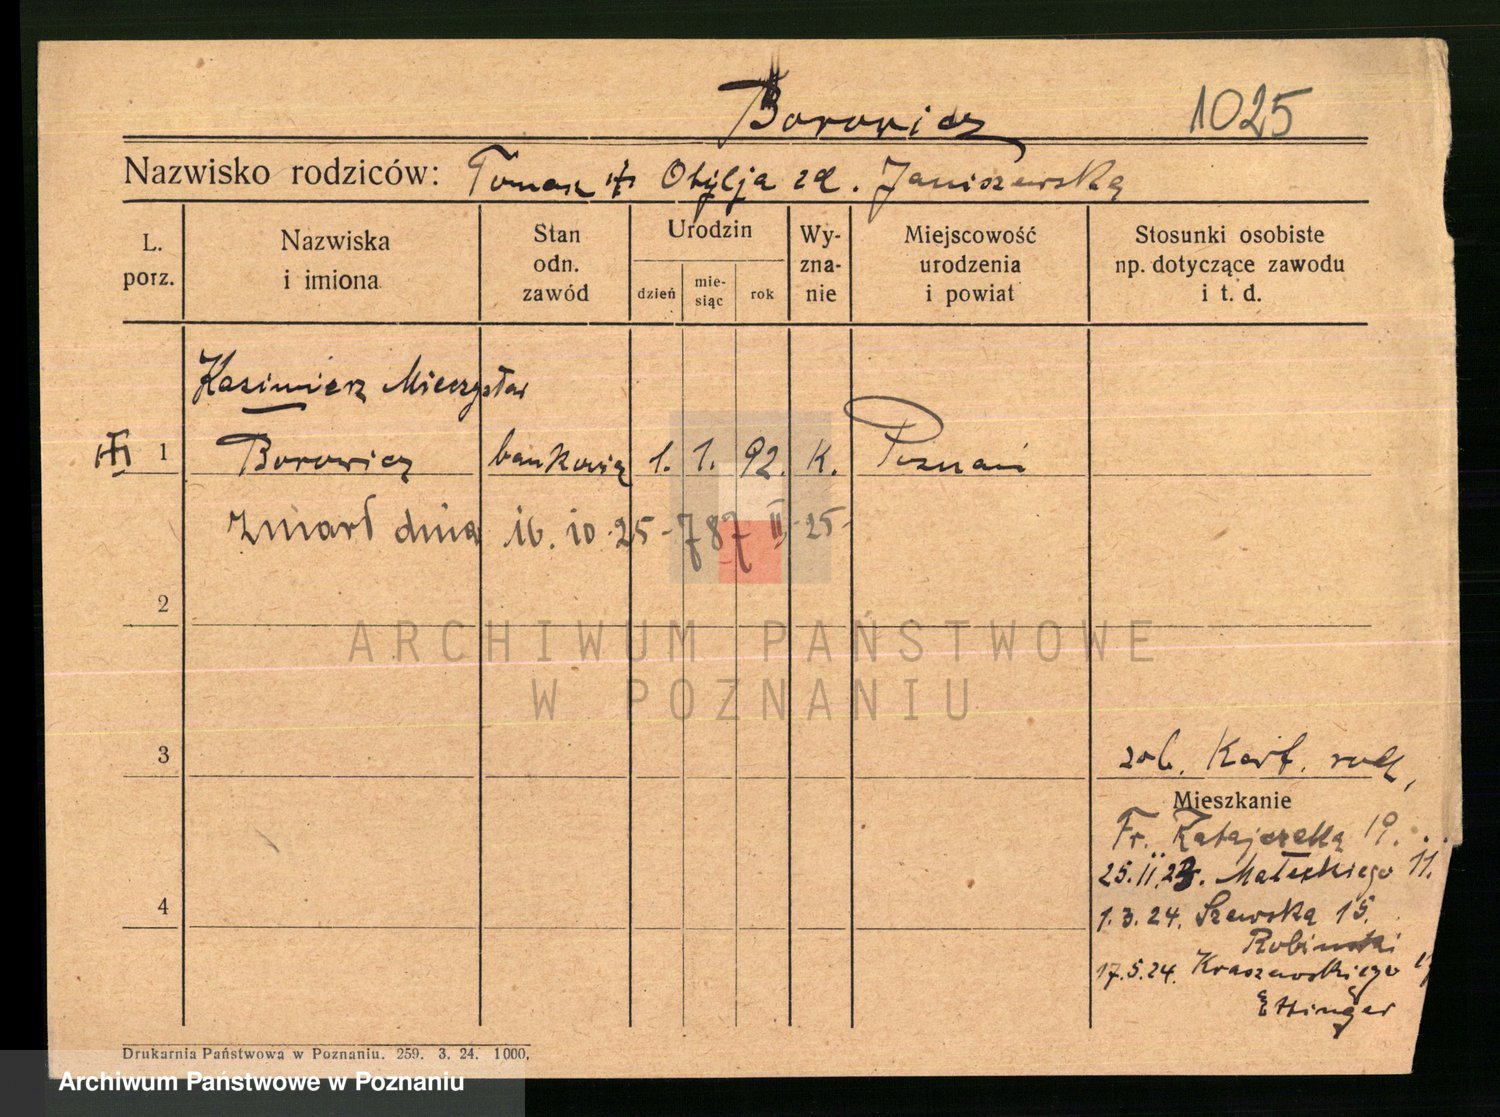 Borowicz 1025
Nazwisko rodziców: Tomasz Otylja zd. Janiszewska
L. porz.
Nazwiska i imiona
Stan odn. zawód
Urodzin
dzień
mie-siąc
rok
Wy-zna-nie
Miejscowość urodzenia i powiat
Stosunki osobiste np. dotyczące zawodu i t. d.
Kazimierz Mieczysław
1 Borowicz 1. 1. 92. K. Poznań
zmarł dnia 16. 10. 25 - 787 II - 25 -
2
ARCHIWUM PAŃSTWOWE
W POZNANIU
3
zob. Kart. rodz,
Mieszkanie
Fr. Ratajczaka 19.
25.II.23. Małeckiego 11.
4
1.3.24. Szewska 15.
Robinski
17.5.24. Kraszewskiego
Ettinger
Drukarnia Państwowa w Poznaniu. 259. 3. 24. 1000.
Archiwum Państwowe w Poznaniu